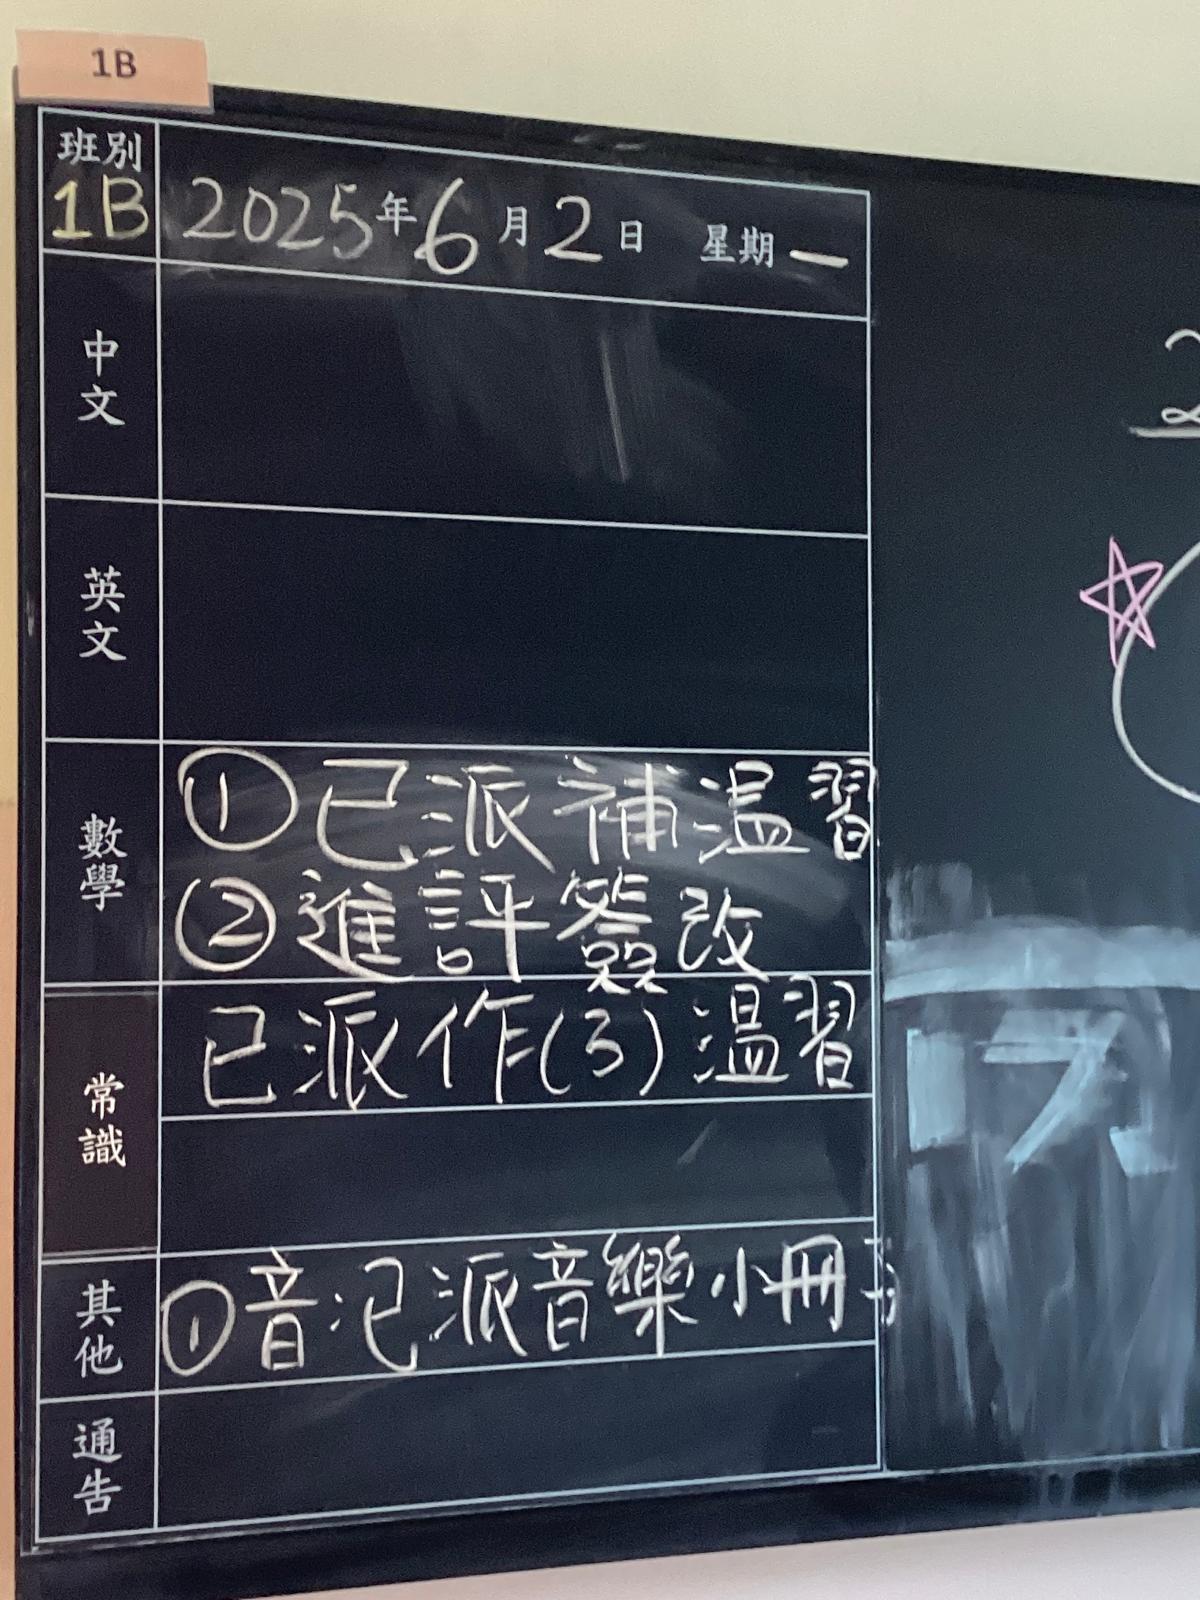 1B
班別
1B
2025年6月2日 星期一
中文
英文
數學
①已派補溫習
②進評簽改
常識
已派作(3)溫習
其他
①音:已派音樂小冊子
通告
2